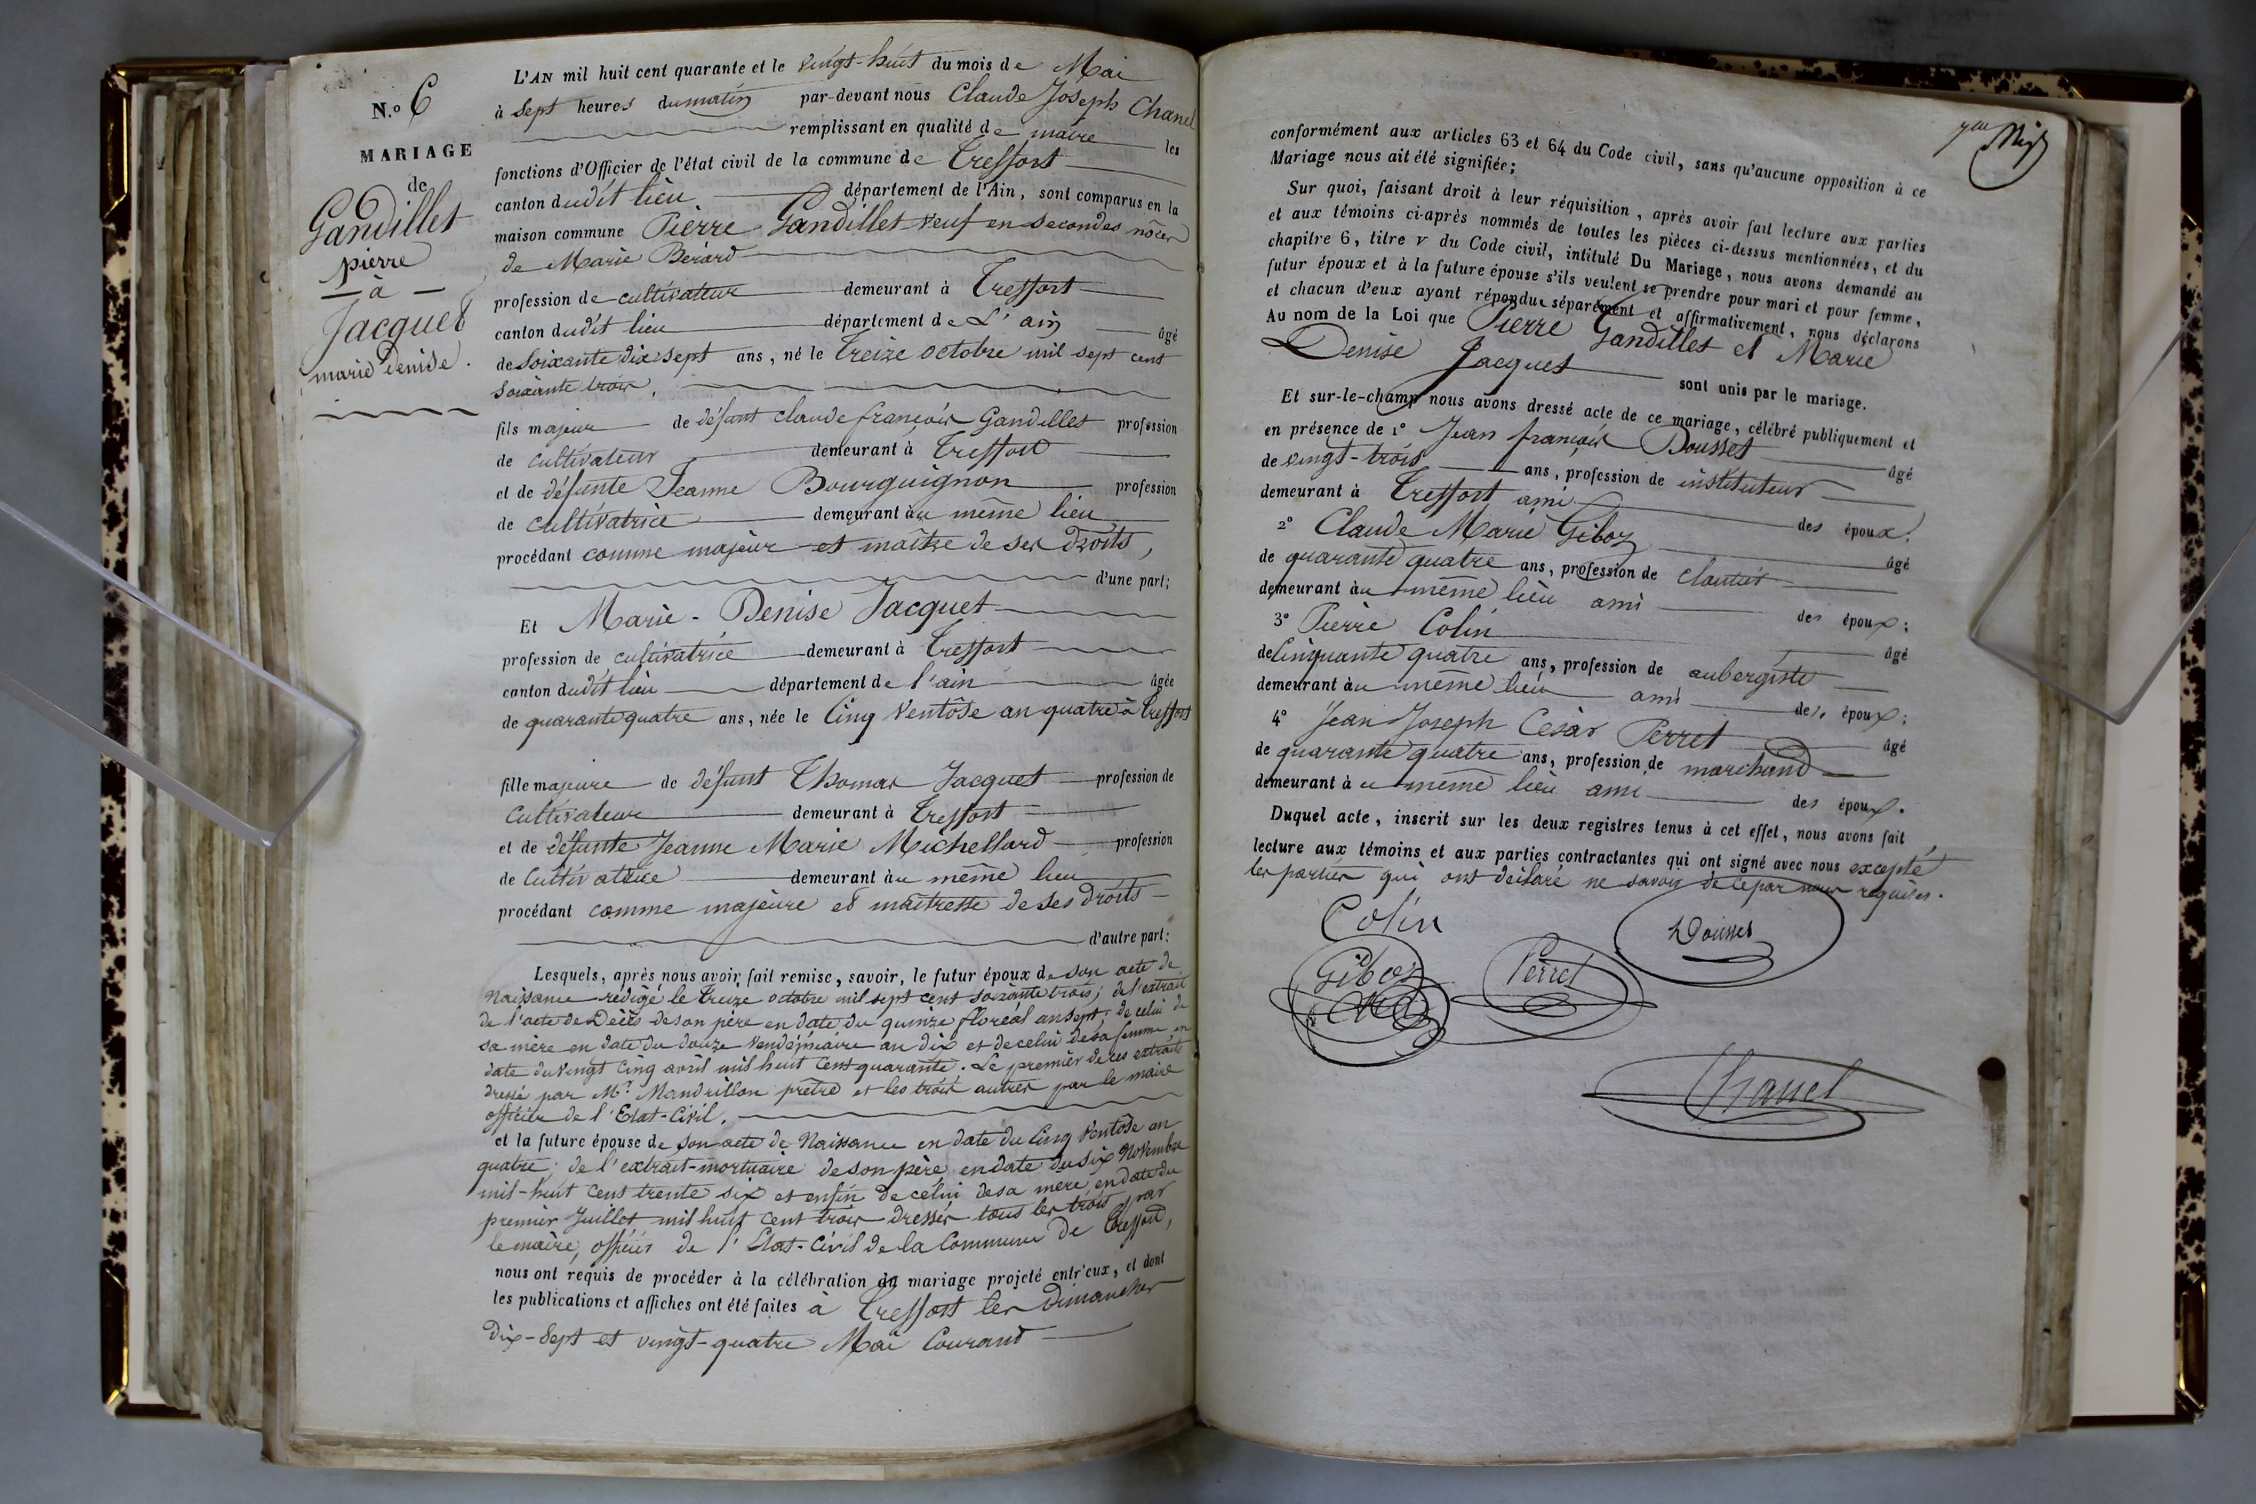 N.o 6
MARIAGE
de
Gandillet
pierre
à
Jacquet
marie Denise.
L'AN mil huit cent quarante et le vingt-huit du mois de Mai
à sept heures du matin par-devant nous Claude Joseph Chanel
remplissant en qualité de maire les
fonctions d'Officier de l'état civil de la commune de Treffort
canton dudit lieu département de l'Ain, sont comparus en la
maison commune Pierre Gandillet veuf en secondes nôces
de Marie Bérard
profession de cultivateur demeurant à Treffort
canton dudit lieu département de L'ain âgé
de soixante dix sept ans, né le treize octobre mil sept cent
soixante trois,
fils majeur de défunt claude françois Gandillet profession
de cultivateur demeurant à Treffort
et de défunte Jeanne Bourguignon profession
de cultivatrice demeurant au même lieu
procédant comme majeur et maître de ses droits,
d'une part;
Et Marie-Denise Jacquet
profession de cultivatrice demeurant à Treffort
canton dudit lieu département de l'ain âgée
de quarante quatre ans, née le Cinq Ventôse an quatre à Treffort
fille majeure de défunt Thomas Jacquet profession de
Cultivateur demeurant à Treffort
et de défunte Jeanne Marie Michellard profession
de Cultivatrice demeurant au même lieu
procédant comme majeure et maîtresse de ses droits
d'autre part:
Lesquels, après nous avoir fait remise, savoir, le futur époux de son acte de
Naissance rédigé le treize octobre mil sept cent soixante trois; de l'extrait
de l'acte de Décès de son père en date du quinze floréal an sept; de celui de
sa mère en date du douze Vendémiaire an dix et de celui de sa femme en
date du vingt cinq avril mil huit cent quarante. Le premier de ces extraits
dressé par Mr. Mandrillon prêtre et les trois autres par le maire
officier de l'Etat-Civil.
et la future épouse de son acte de Naissance en date du Cinq Ventôse an
quatre; de l'extrait-mortuaire de son père en date du six Novembre
mil-huit cent trente six et enfin de celui de sa mere en date du
premier Juillet mil huit cent trois dressés tous les trois par
le maire, officier de l'Etat-Civil de la Commune de Treffort,
nous ont requis de procéder à la célébration du mariage projeté entr'eux, et dont
les publications et affiches ont été faites à Treffort les Dimanches
Dix-Sept et vingt-quatre Mai Courant
conformément aux articles 63 et 64 du Code civil, sans qu'aucune opposition à ce
Mariage nous ait été signifiée;
Sur quoi, faisant droit à leur réquisition, après avoir fait lecture aux parties
et aux témoins ci-après nommés de toutes les pièces ci-dessus mentionnées, et du
chapitre 6, titre v du Code civil, intitulé Du Mariage, nous avons demandé au
futur époux et à la future épouse s'ils veulent se prendre pour mari et pour femme,
et chacun d'eux ayant répondu séparément et affirmativement, nous déclarons
Au nom de la Loi que Pierre Gandillet et Marie
Denise Jacquet sont unis par le mariage.
Et sur-le-champ nous avons dressé acte de ce mariage, célébré publiquement et
en présence de 1º Jean françois Dousset âgé
de vingt-trois ans, profession de instituteur
demeurant à Treffort ami des époux.
2º Claude Marie Giboz âgé
de quarante quatre ans, profession de cloutier
demeurant au même lieu ami des époux;
3º Pierre Colin âgé
de Cinquante quatre ans, profession de aubergiste
demeurant au même lieu ami des époux;
4º Jean Joseph Cesàr Perret âgé
de quarante quatre ans, profession de marchand
demeurant à u même lieu ami des époux.
Duquel acte, inscrit sur les deux registres tenus à cet effet, nous avons fait
lecture aux témoins et aux parties contractantes qui ont signé avec nous excepté
les parties qui ont déclaré ne savoir de ce par nous requises.
Colin
Dousset
Giboz
Perret
Chanel